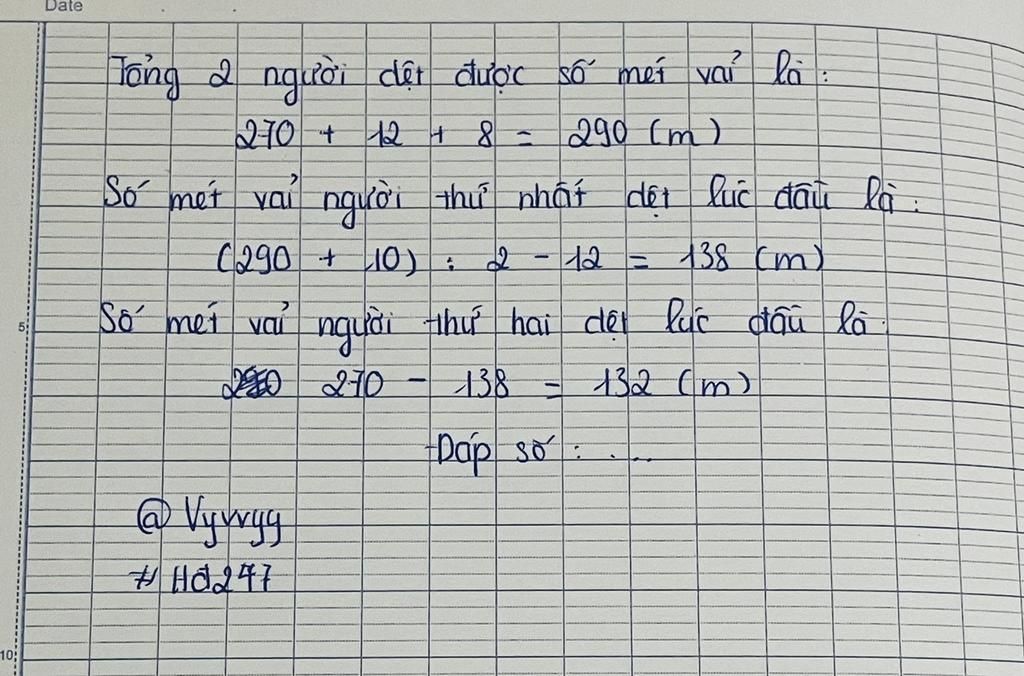 Date
Tổng 2 người dệt được số mét vải là:
270 + 12 + 8 = 290 (m)
Số mét vải người thứ nhất dệt lúc đầu là:
(290 + 10) : 2 - 12 = 138 (m)
Số mét vải người thứ hai dệt lúc đầu là
5
270 - 138 = 132 (m)
Đáp số : ....
@ Vyvvyy
# Hd247
10